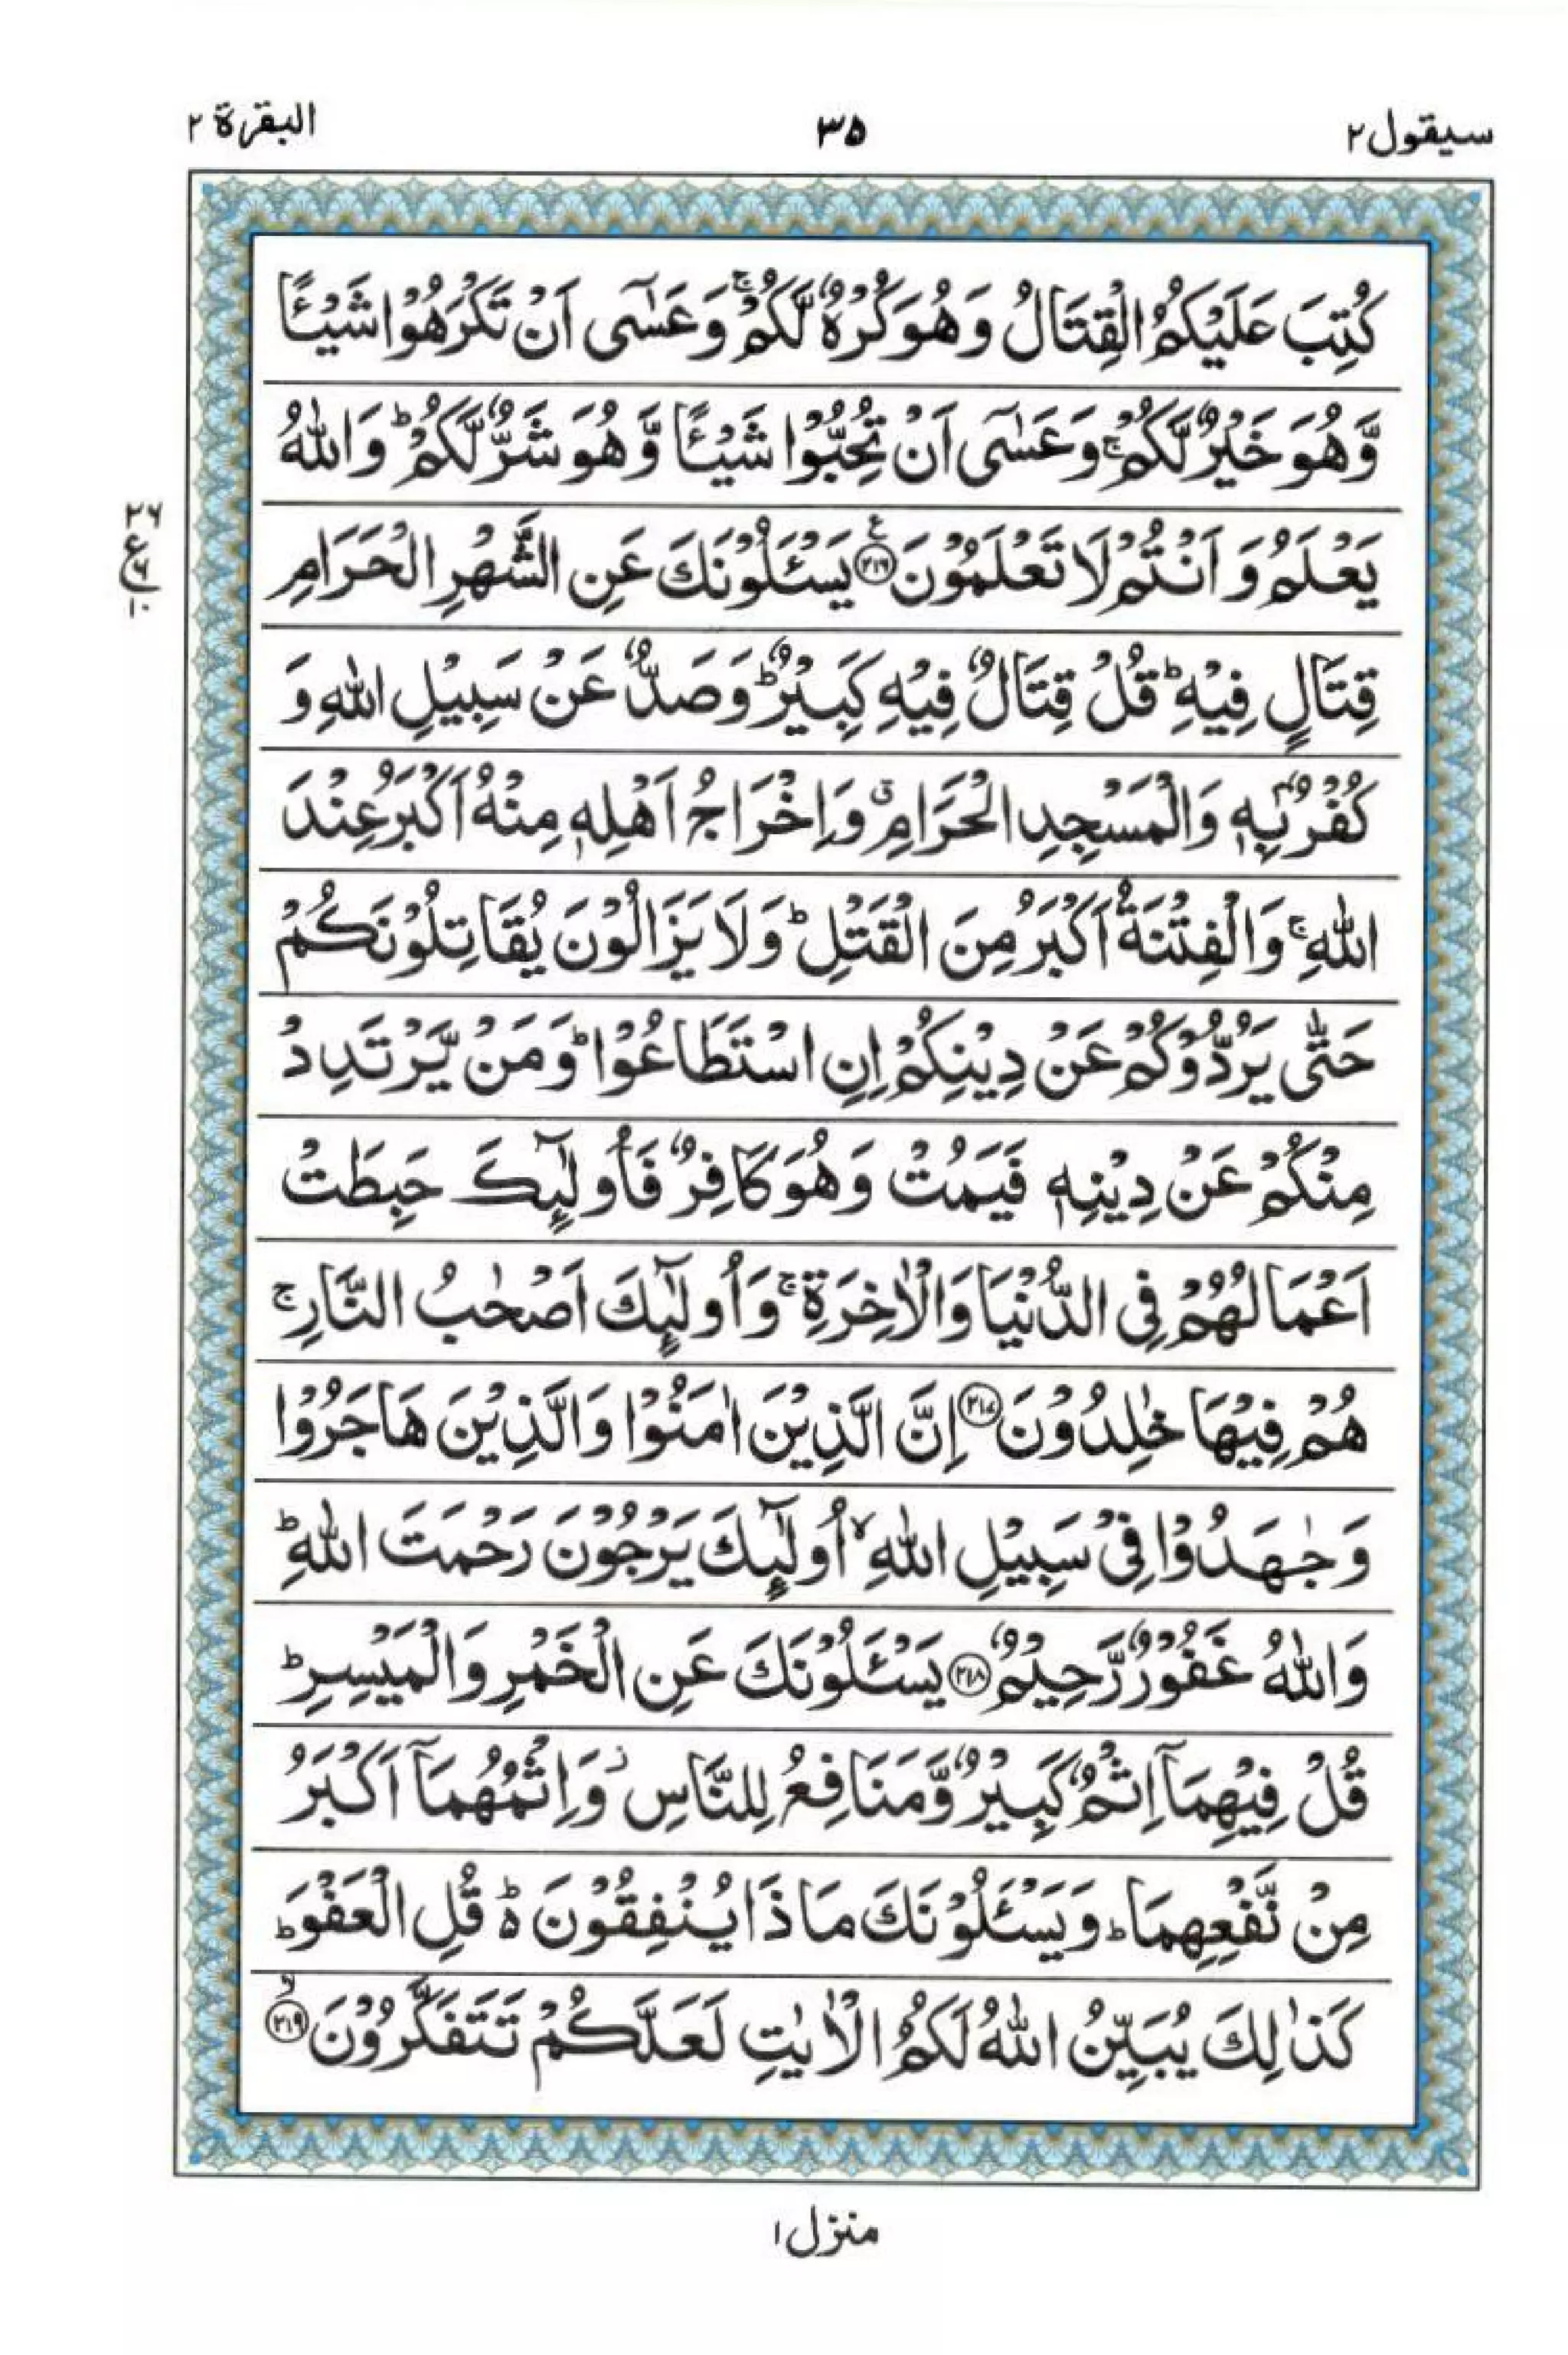 سیقول ٢
٣٥
البقرة ٢
كُتِبَ عَلَيْكُمُ الْقِتَالُ وَهُوَ كُرْهٌ لَّكُمْ ۚ وَعَسٰٓى اَنْ تَكْرَهُوْا شَيْـًٔا
وَّهُوَ خَيْرٌ لَّكُمْ ۚ وَعَسٰٓى اَنْ تُحِبُّوْا شَيْـًٔا وَّهُوَ شَرٌّ لَّكُمْ ؕ وَاللّٰهُ
يَعْلَمُ وَاَنْتُمْ لَا تَعْلَمُوْنَ ﴿٢١٦﴾ ع يَسْـَٔلُوْنَكَ عَنِ الشَّهْرِ الْحَرَامِ
٢٦
ع
٦
١٠
قِتَالٍ فِيْهِ ؕ قُلْ قِتَالٌ فِيْهِ كَبِيْرٌ ؕ وَصَدٌّ عَنْ سَبِيْلِ اللّٰهِ وَ
كُفْرٌۢ بِهٖ وَالْمَسْجِدِ الْحَرَامِ ۗ وَاِخْرَاجُ اَهْلِهٖ مِنْهُ اَكْبَرُ عِنْدَ
اللّٰهِ ۚ وَالْفِتْنَةُ اَكْبَرُ مِنَ الْقَتْلِ ؕ وَلَا يَزَالُوْنَ يُقَاتِلُوْنَكُمْ
حَتّٰى يَرُدُّوْكُمْ عَنْ دِيْنِكُمْ اِنِ اسْتَطَاعُوْا ؕ وَمَنْ يَّرْتَدِدْ
مِنْكُمْ عَنْ دِيْنِهٖ فَيَمُتْ وَهُوَ كَافِرٌ فَاُولٰٓئِكَ حَبِطَتْ
اَعْمَالُهُمْ فِى الدُّنْيَا وَالْاٰخِرَةِ ۚ وَاُولٰٓئِكَ اَصْحٰبُ النَّارِ ۚ
هُمْ فِيْهَا خٰلِدُوْنَ ﴿٢١٧﴾ اِنَّ الَّذِيْنَ اٰمَنُوْا وَالَّذِيْنَ هَاجَرُوْا
وَجٰهَدُوْا فِىْ سَبِيْلِ اللّٰهِ ۙ اُولٰٓئِكَ يَرْجُوْنَ رَحْمَتَ اللّٰهِ ؕ
وَاللّٰهُ غَفُوْرٌ رَّحِيْمٌ ﴿٢١٨﴾ يَسْـَٔلُوْنَكَ عَنِ الْخَمْرِ وَالْمَيْسِرِ ؕ
قُلْ فِيْهِمَآ اِثْمٌ كَبِيْرٌ وَّمَنَافِعُ لِلنَّاسِ ز وَاِثْمُهُمَآ اَكْبَرُ
مِنْ نَّفْعِهِمَا ؕ وَيَسْـَٔلُوْنَكَ مَاذَا يُنْفِقُوْنَ ەؕ قُلِ الْعَفْوَ ؕ
كَذٰلِكَ يُبَيِّنُ اللّٰهُ لَكُمُ الْاٰيٰتِ لَعَلَّكُمْ تَتَفَكَّرُوْنَ ﴿٢١٩﴾ ۙ
منزل ١